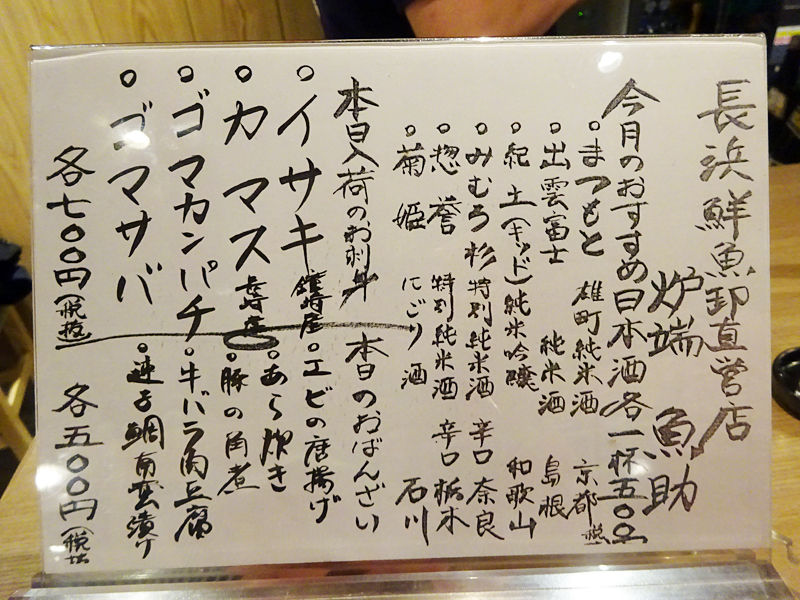 長浜鮮魚卸直営店
炉端 魚助
今月のおすすめ日本酒各一杯五〇〇
税
。まつもと 雄町純米酒 京都
。出雲富士 純米酒 島根
。紀土(キッド)純米吟醸 和歌山
。みむろ杉 特別純米酒 辛口 奈良
。惣誉 特別純米酒 辛口 栃木
。菊姫 にごり酒 石川
本日入荷のお刺身
。イサキ 長崎産
。カマス 長崎産
。ゴマカンパチ
。ゴマサバ
各七〇〇円(税抜)
本日のおばんざい
・エビの唐揚げ
・あら炊き
・豚の角煮
・牛バラ肉豆腐
・連子鯛南蛮漬け
各五〇〇円(税抜